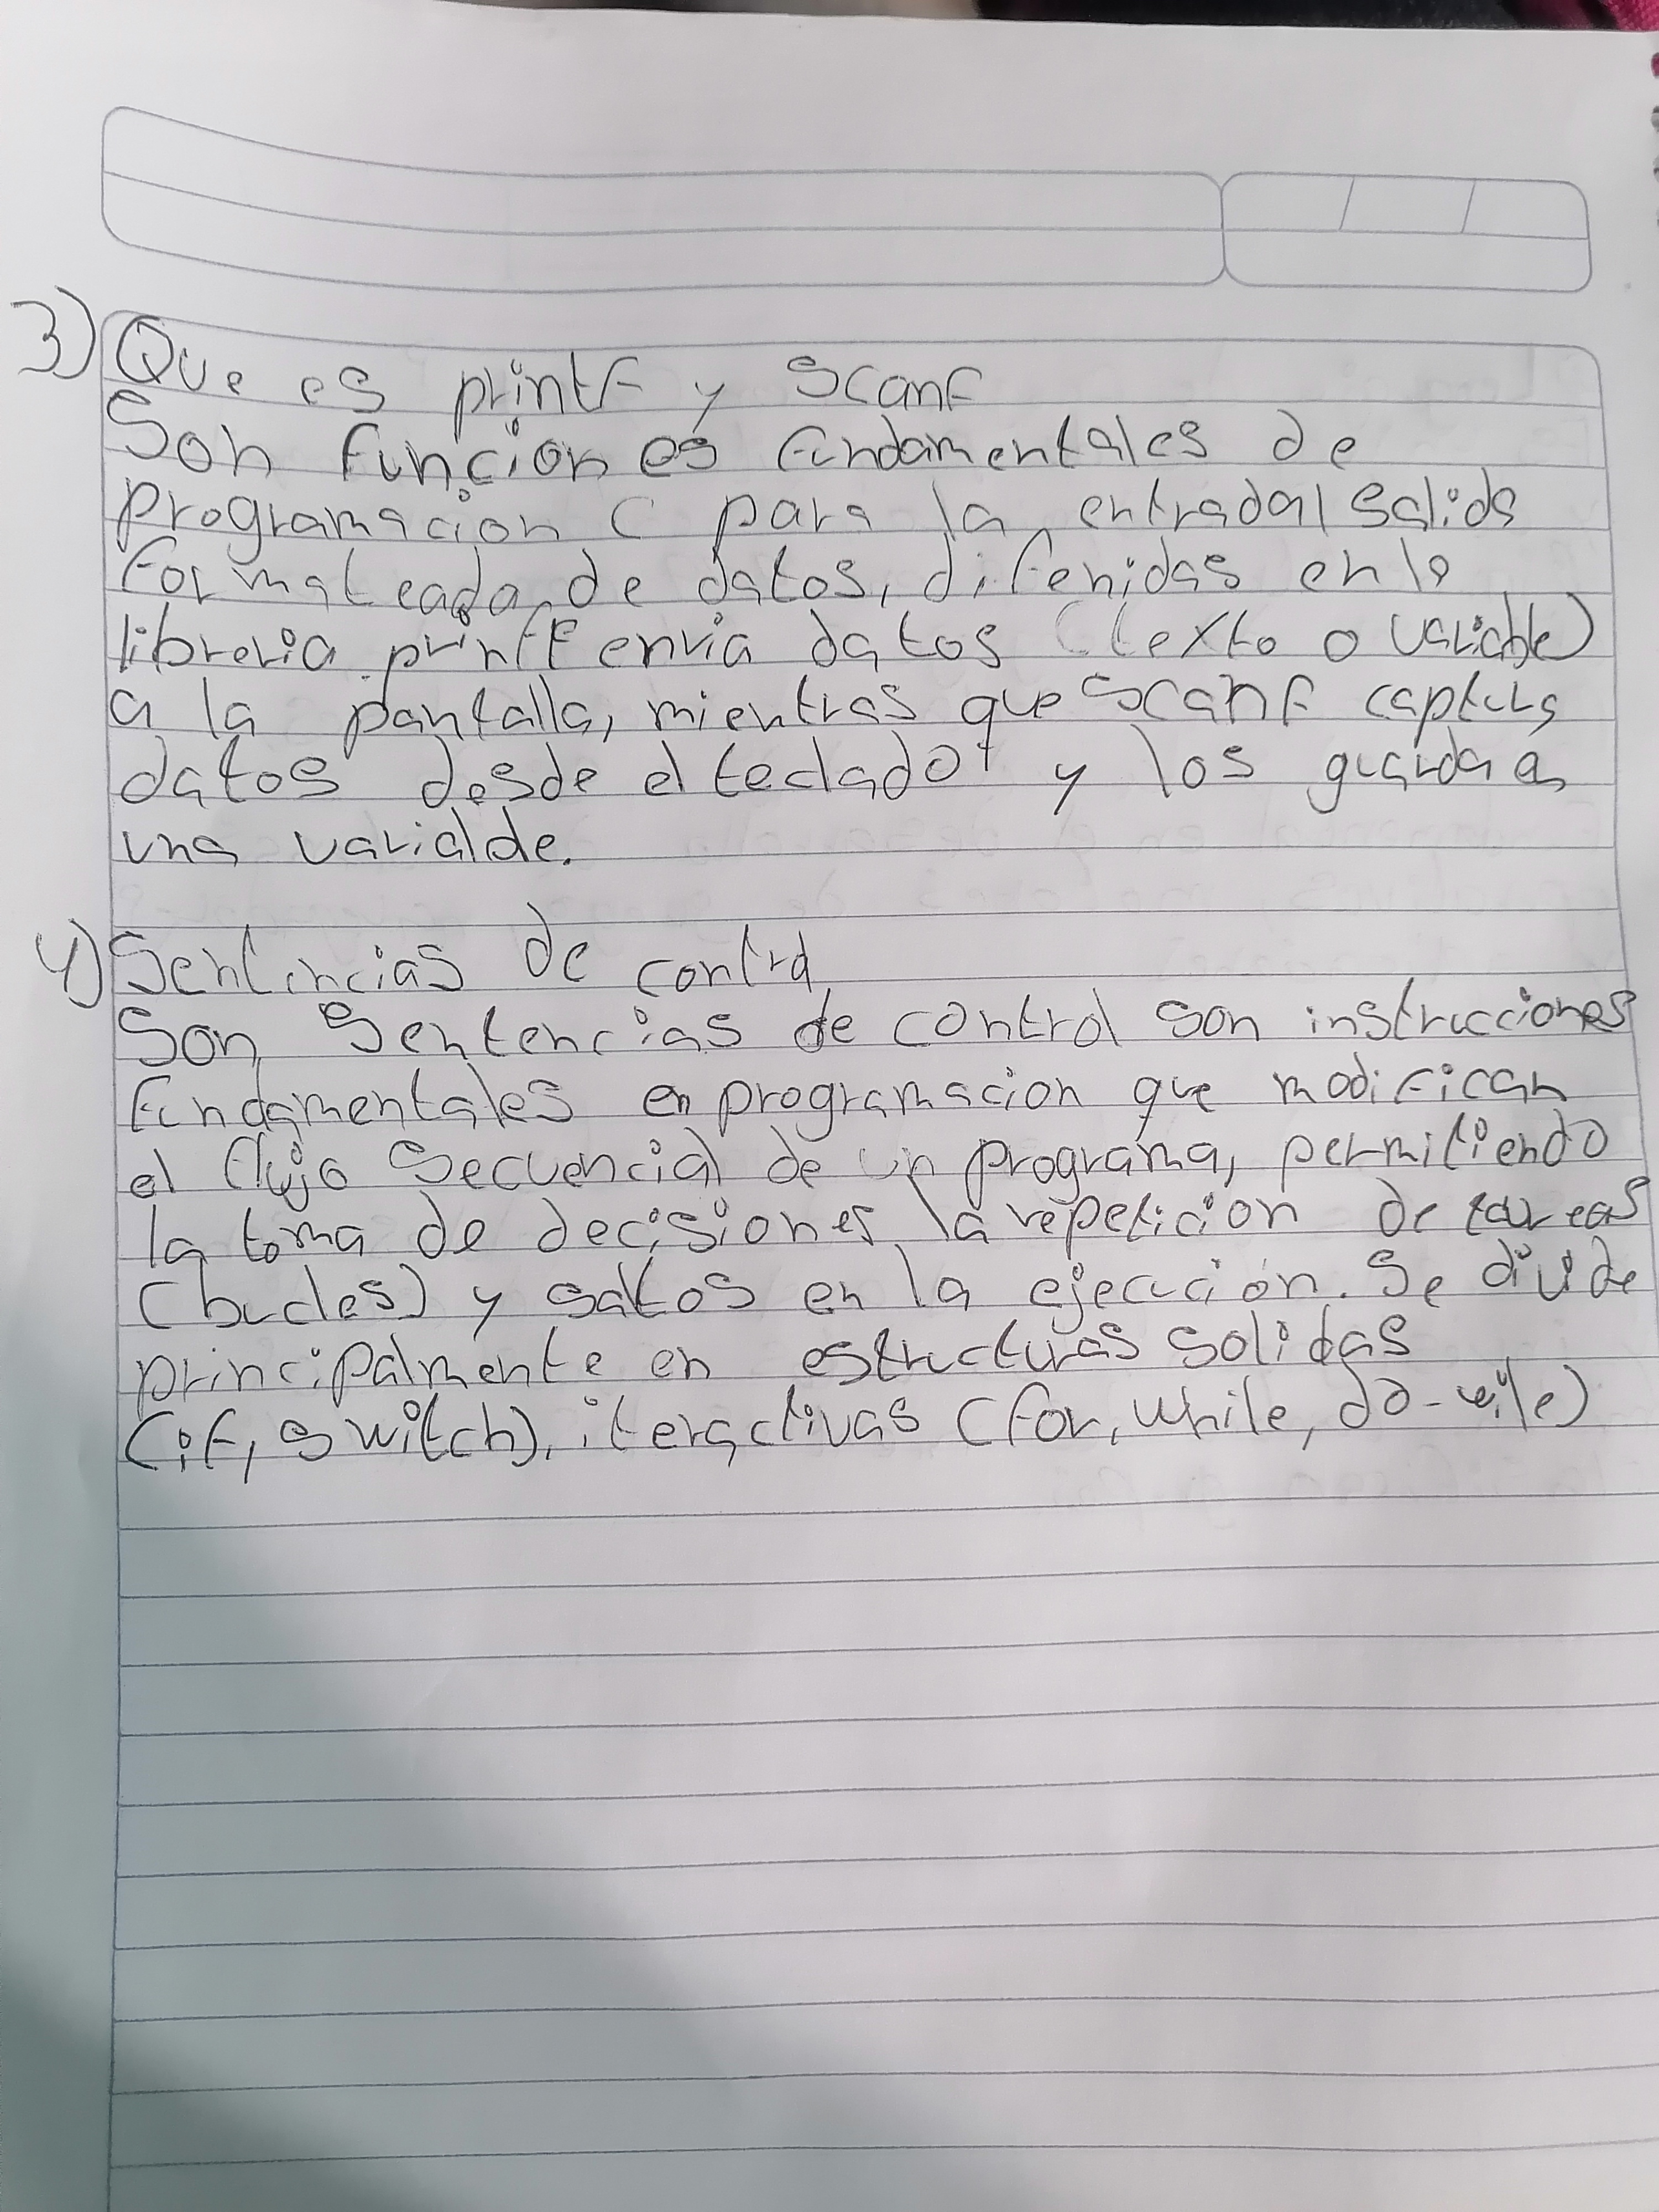 3) Que es printf y Scanf
Son funciones fundamentales de
programacion C para la entrada/salida
formateada de datos, difenidas en la
libreria. printf envia datos (texto o variable)
a la pantalla, mientras que Scanf captura
datos desde el teclado y los guarda en
una varialde.
4) Sentencias de control
Son Sentencias de control son instrucciones
fundamentales en programacion que modifican
el flujo Secuencial de un programa, permitiendo
la toma de decisiones, la repeticion de tareas
(bucles) y saltos en la ejecución. Se divide
principalmente en estructuras solidas
(if, switch), iteractivas (for, while, do-wile)